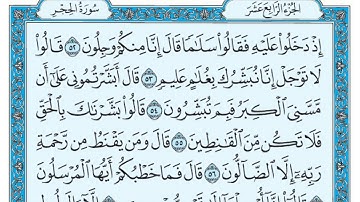 الجزء الرابع عشر سورة الحجر
إِذْ دَخَلُوا۟ عَلَيْهِ فَقَالُوا۟ سَلَـٰمًا قَالَ إِنَّا مِنكُمْ وَجِلُونَ ٥٢ قَالُوا۟
لَا تَوْجَلْ إِنَّا نُبَشِّرُكَ بِغُلَـٰمٍ عَلِيمٍ ٥٣ قَالَ أَبَشَّرْتُمُونِى عَلَىٰٓ أَن
مَّسَّنِىَ ٱلْكِبَرُ فَبِمَ تُبَشِّرُونَ ٥٤ قَالُوا۟ بَشَّرْنَـٰكَ بِٱلْحَقِّ
فَلَا تَكُن مِّنَ ٱلْقَـٰنِطِينَ ٥٥ قَالَ وَمَن يَقْنَطُ مِن رَّحْمَةِ
رَبِّهِۦٓ إِلَّا ٱلضَّآلُّونَ ٥٦ قَالَ فَمَا خَطْبُكُمْ أَيُّهَا ٱلْمُرْسَلُونَ